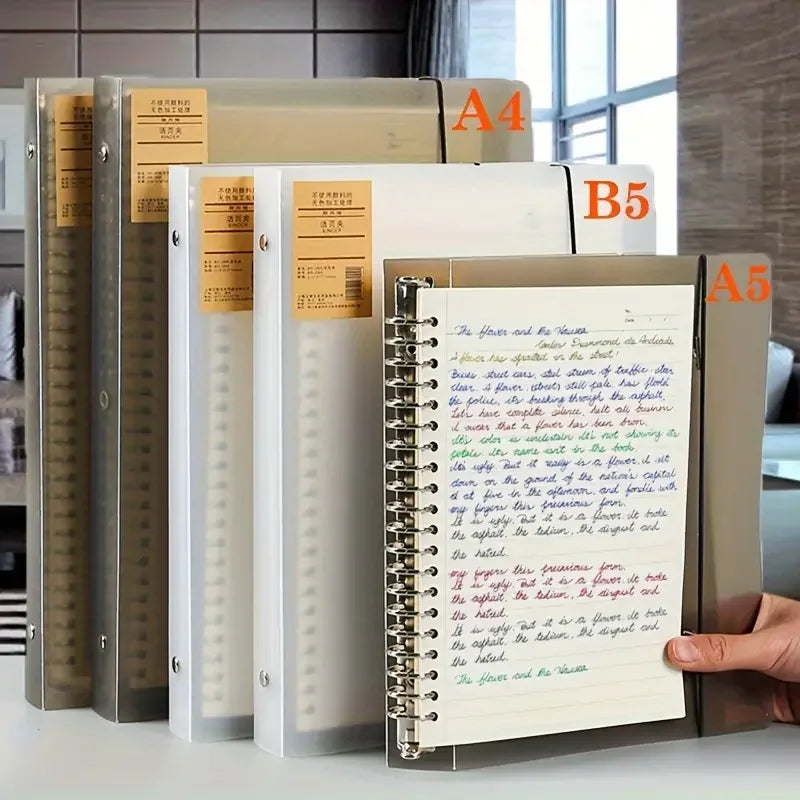 A4
B5
A5
不使用颜料的
无色加工处理
活页夹
BINDER
不使用颜料的
无色加工处理
活页夹
BINDER
不使用颜料的
无色加工处理
活页夹
BINDER
The flower and the Nausea
Carlos Drummond de Andrade
A flower has sprouted in the street!
Buses, street cars, steel stream of traffic, steer
clear. A flower, still pale, has
the police, it's breaking through the asphalt.
Let's have complete silence, halt all business
I swear that a flower has been born.
It's color is uncertain It's not showing its
petals. It's name isn't in the book.
It's ugly. But it really is a flower. I sit
down on the ground of the nation's capital
at five in the afternoon, and fondle with
my fingers this precarious form.
It is ugly. But it is a flower. It broke
the asphalt, the tedium, the disgust and
the hatred.
my fingers this precarious form.
It is ugly. But it is a flower. It broke
the asphalt, the tedium, the disgust and
the hatred.
It is ugly. But it is a flower. It broke
the asphalt, the tedium, the disgust and
the hatred.
The flower and the Nausea